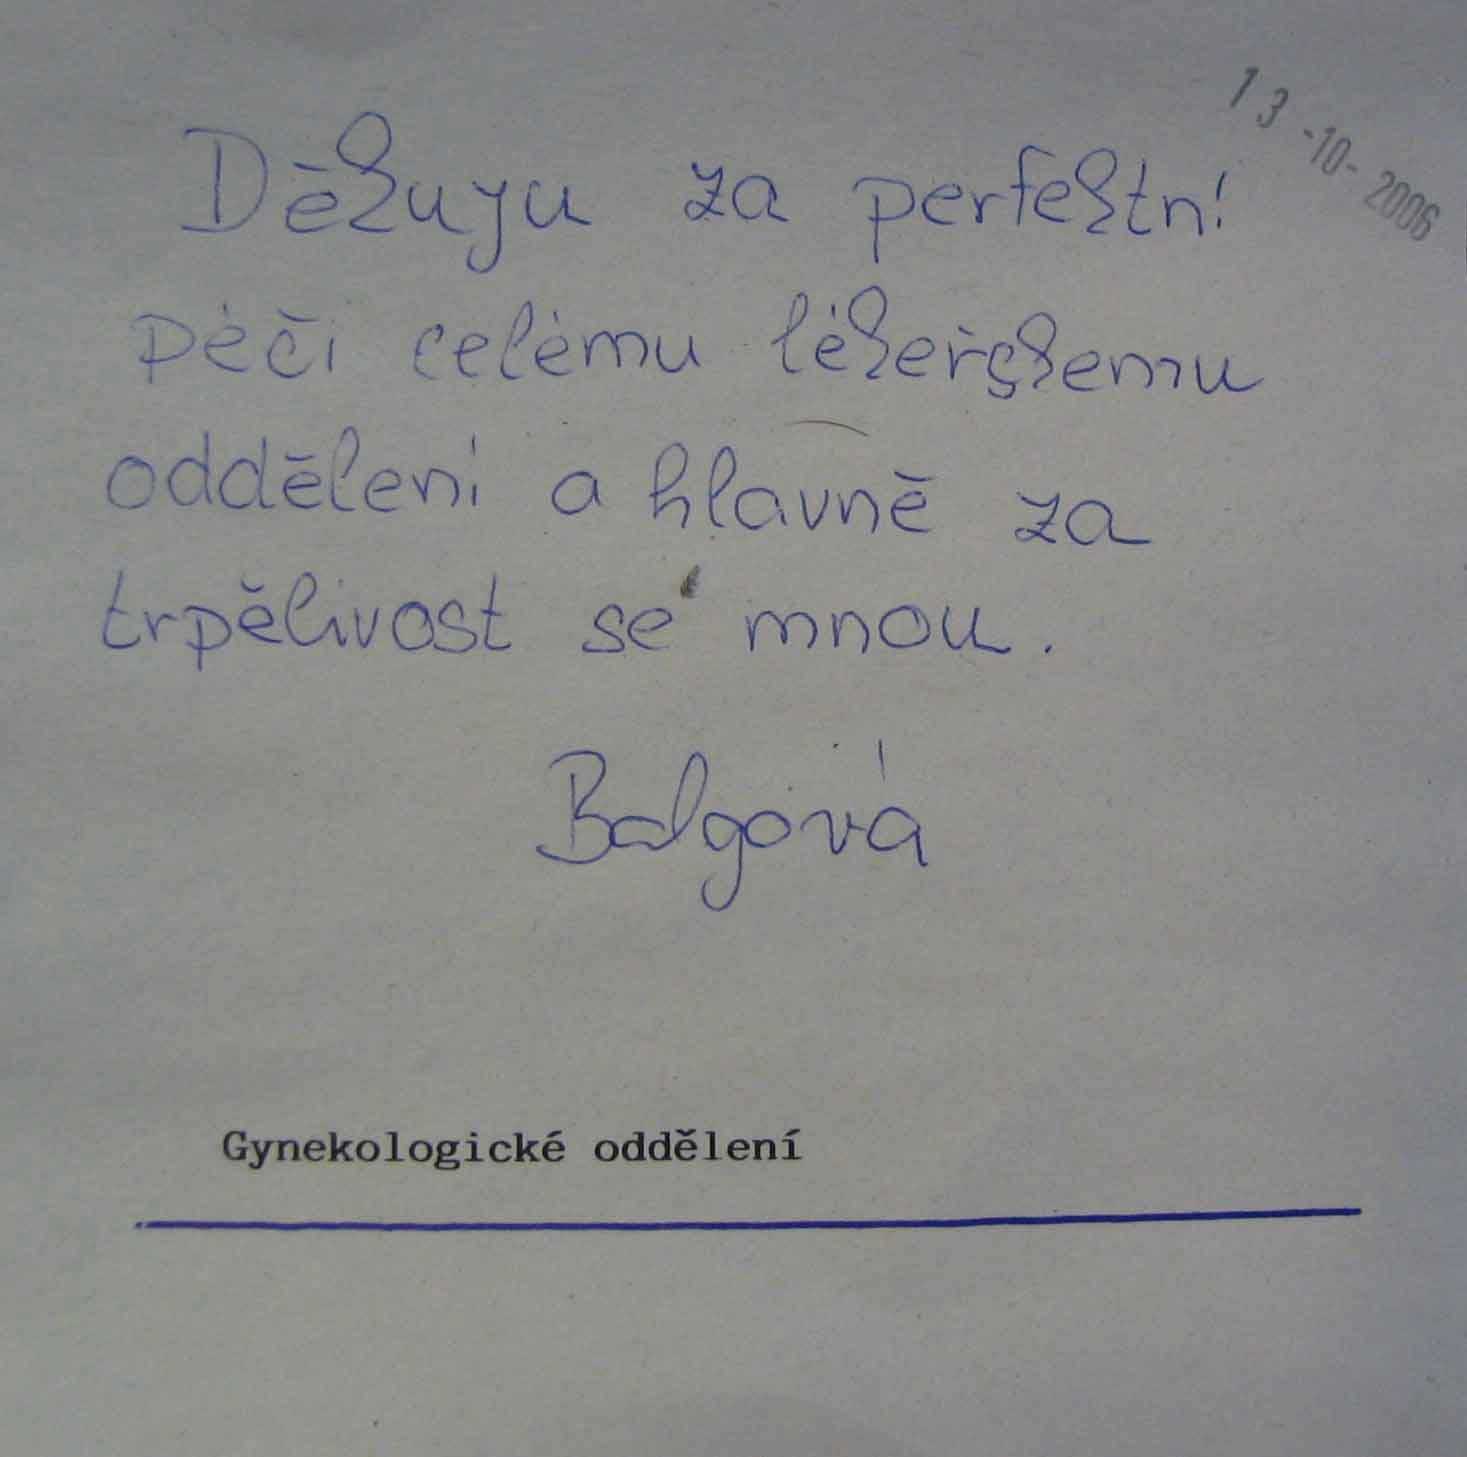 13 -10- 2006
Děkuyu za perfektní
péči celému lékeřskemu
oddělení a hlavně za
trpělivost se mnou.
Balgová
Gynekologické oddělení